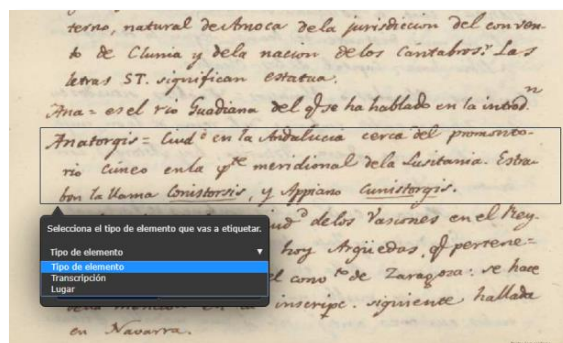 terno, natural de Amoca dela jurisdiccion del conven-
to de Clunia y dela nacion delos Cantabros. Las
letras ST. significan estatua.
Ana = es el rio Guadiana del q̃ se ha hablado en la introd.n
Anatorgis = Ciud.d en la Andalucia cerca del promonto-
rio Cuneo en la p.te meridional dela Lusitania. Estra-
bon la llama Conistorsis, y Appiano Cunistorgis.
delos Vascones en el Rey-
hoy Arguedas, q̃ pertene-
conv.to de Zaragoza: se hace
inscripc. siguiente hallada
en Navarra.
Selecciona el tipo de elemento que vas a etiquetar.
Tipo de elemento
Tipo de elemento
Transcripción
Lugar